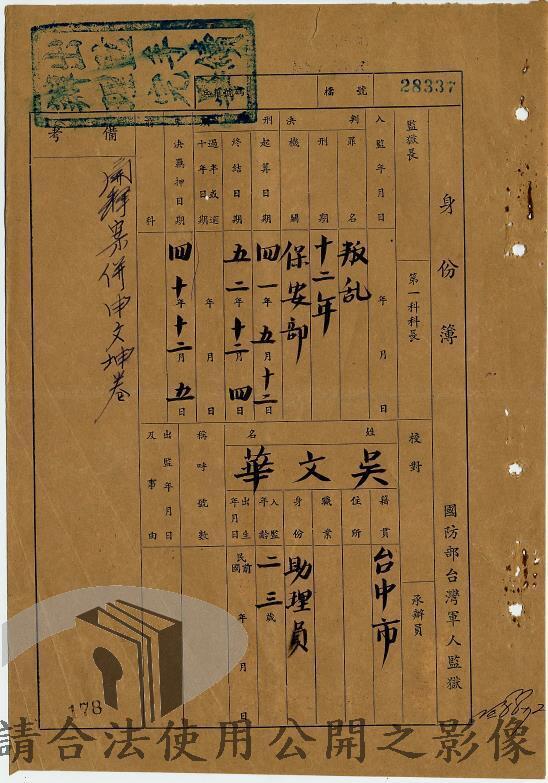 28337
號檔
身份簿
國防部台灣軍人監獄
監獄長
第一科科長
校對
承辦員
入監年月日
年 月 日
判罪名
叛乱
刑期
十二年
判決機關
保安部
刑期起算日期
四一年五月十二日
刑期終結日期
五二年十二月四日
過半或逾十年日期
年 月 日
判決羈押日期
四十年十二月五日
前科
備考
姓名
吳文華
籍貫
台中市
住所
職業
身份
助理員
入監年齡
二三歲
出生年月日
民國前 年 月 日
稱呼號數
出監年月日及事由
開釋案併申文坤卷
178
請合法使用公開之影像